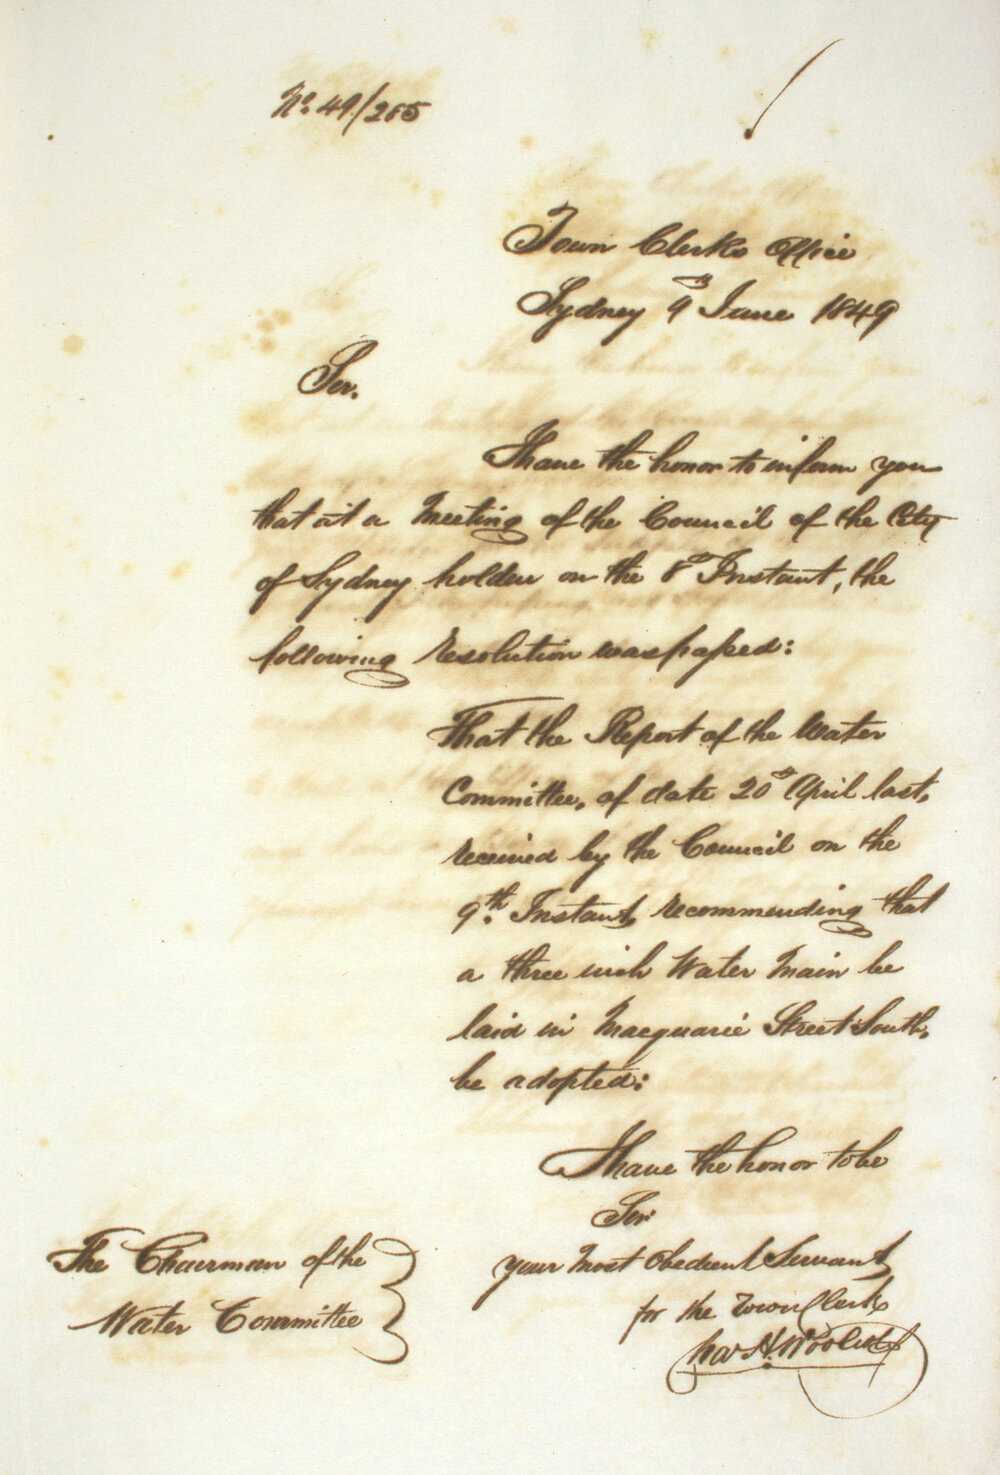 No. 49/285
Town Clerks Office
Sydney 9th June 1849
Sir.
I have the honor to inform you
that at a Meeting of the Council of the City
of Sydney holden on the 8th Instant, the
following resolution was passed:
That the Report of the Water
Committee, of date 20th April last,
received by the Council on the
9th. Instant, recommending that
a three inch Water Main be
laid in Macquarie Street South,
be adopted:
I have the honor to be
Sir
your Most Obedient Servant
for the Town Clerk
Chas H. Woolcott
The Chairman of the
Water Committee